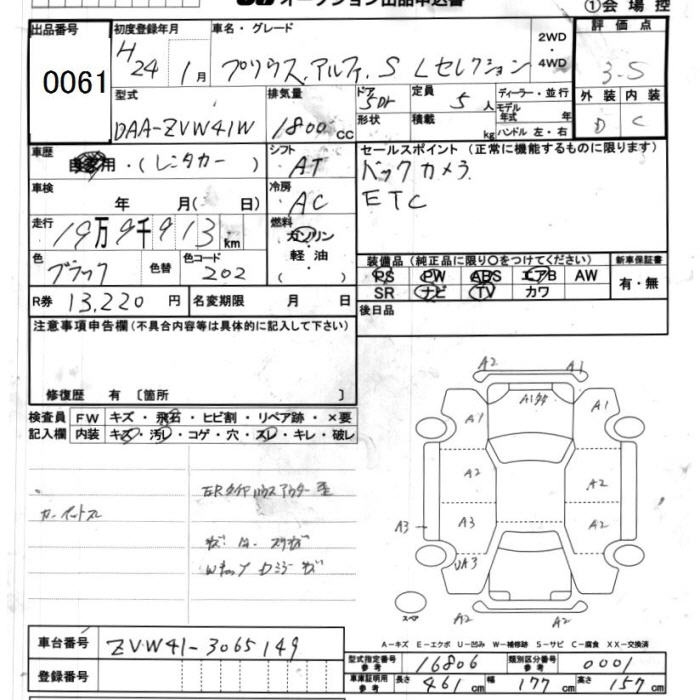 オークション出品申込書
①会場控
出品番号 0061
初度登録年月 H24 1月
車名・グレード プリウス アルファ S Lセレクション
2WD・4WD
評価点 3.5
外装 内装
D C
型式 DAA-ZVW41W
排気量 1800cc
ドア 5Dr
形状
定員 5人
積載 kg
ディーラー・並行
モデル年式 年
ハンドル 左・右
車歴 自家用・(レンタカー)
シフト AT
セールスポイント(正常に機能するものに限ります)
バックカメラ
ETC
車検 年 月( 日)
冷房 AC
走行 19万9千913km
燃料 ガソリン・軽油・( )
色 ブラック
色替
色コード 202
装備品(純正品に限り○をつけてください)
PS PW ABS エアB AW
SR ナビ TV カワ
新車保証書 有・無
R券 13,220円
名変期限 月 日
後日品
注意事項申告欄(不具合内容等は具体的に記入して下さい)
修復歴 有〔箇所 〕
検査員記入欄
FW キズ・飛石・ヒビ割・リペア跡・×要
内装 キズ・汚レ・コゲ・穴・スレ・キレ・破レ
A2 A1
A1 A1
A2 A2
A3 A3 A2
UA3
A2 A2
スペア
A-キズ E-エクボ U-凹み W-補修跡 S-サビ C-腐食 XX-交換済
車台番号 ZVW41-3065149
登録番号
型式指定番号参考 16806
類別区分番号参考 0001
車庫証明用参考 長さ 461cm 幅 177cm 高さ 157cm